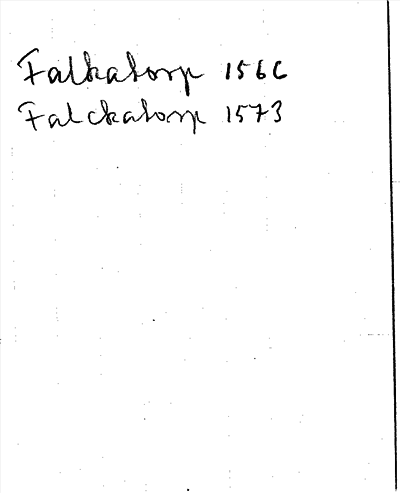 Falkatorp 1566
Falckatorp 1573